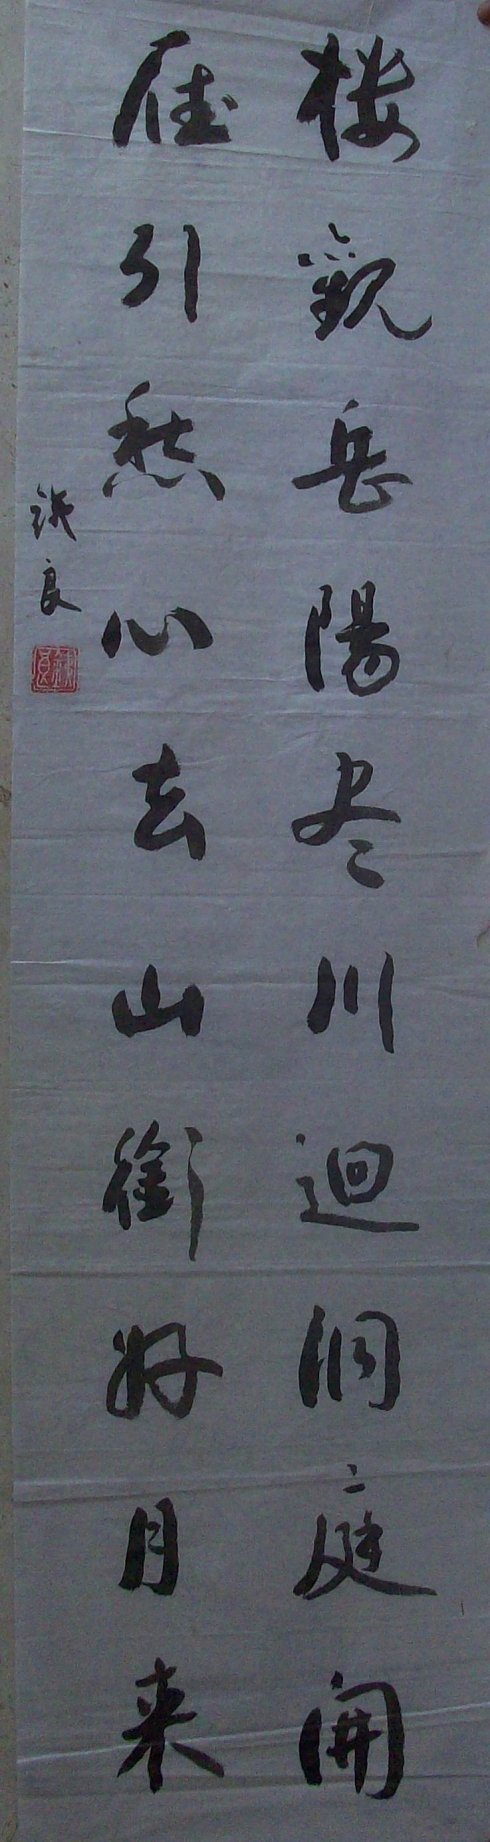 楼觀岳陽尽川迴洞庭開
雁引愁心去山銜好月来
良